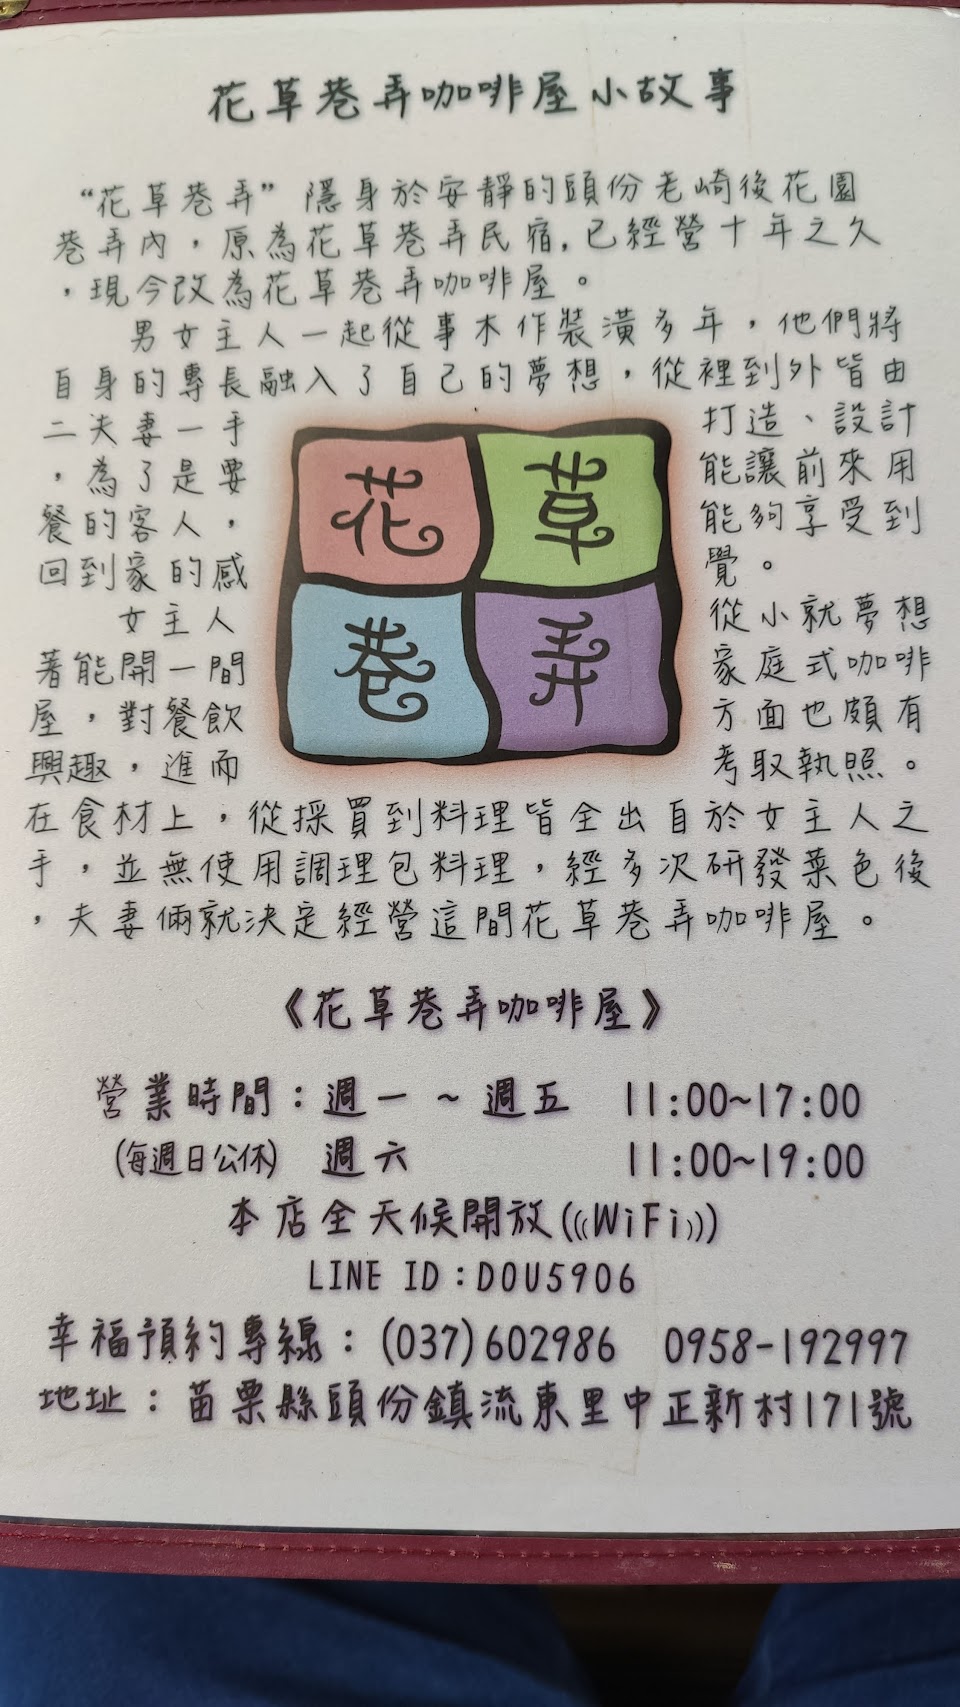 花草巷弄咖啡屋小故事
“花草巷弄”隱身於安靜的頭份老崎後花園
巷弄內，原為花草巷弄民宿，已經營十年之久
，現今改為花草巷弄咖啡屋。
男女主人一起從事木作裝潢多年，他們將
自身的專長融入了自己的夢想，從裡到外皆由
二夫妻一手 打造、設計
，為了是要 能讓前來用
餐的客人， 能夠享受到
回到家的感 覺。
女主人 從小就夢想
著能開一間 家庭式咖啡
屋，對餐飲 方面也頗有
興趣，進而 考取執照。
花 草
巷 弄
在食材上，從採買到料理皆全出自於女主人之
手，並無使用調理包料理，經多次研發菜色後
，夫妻倆就決定經營這間花草巷弄咖啡屋。
《花草巷弄咖啡屋》
營業時間：週一 ~ 週五 11:00~17:00
(每週日公休) 週六 11:00~19:00
本店全天候開放(((WiFi)))
LINE ID：DOU5906
幸福預約專線：(037)602986 0958-192997
地址：苗栗縣頭份鎮流東里中正新村171號